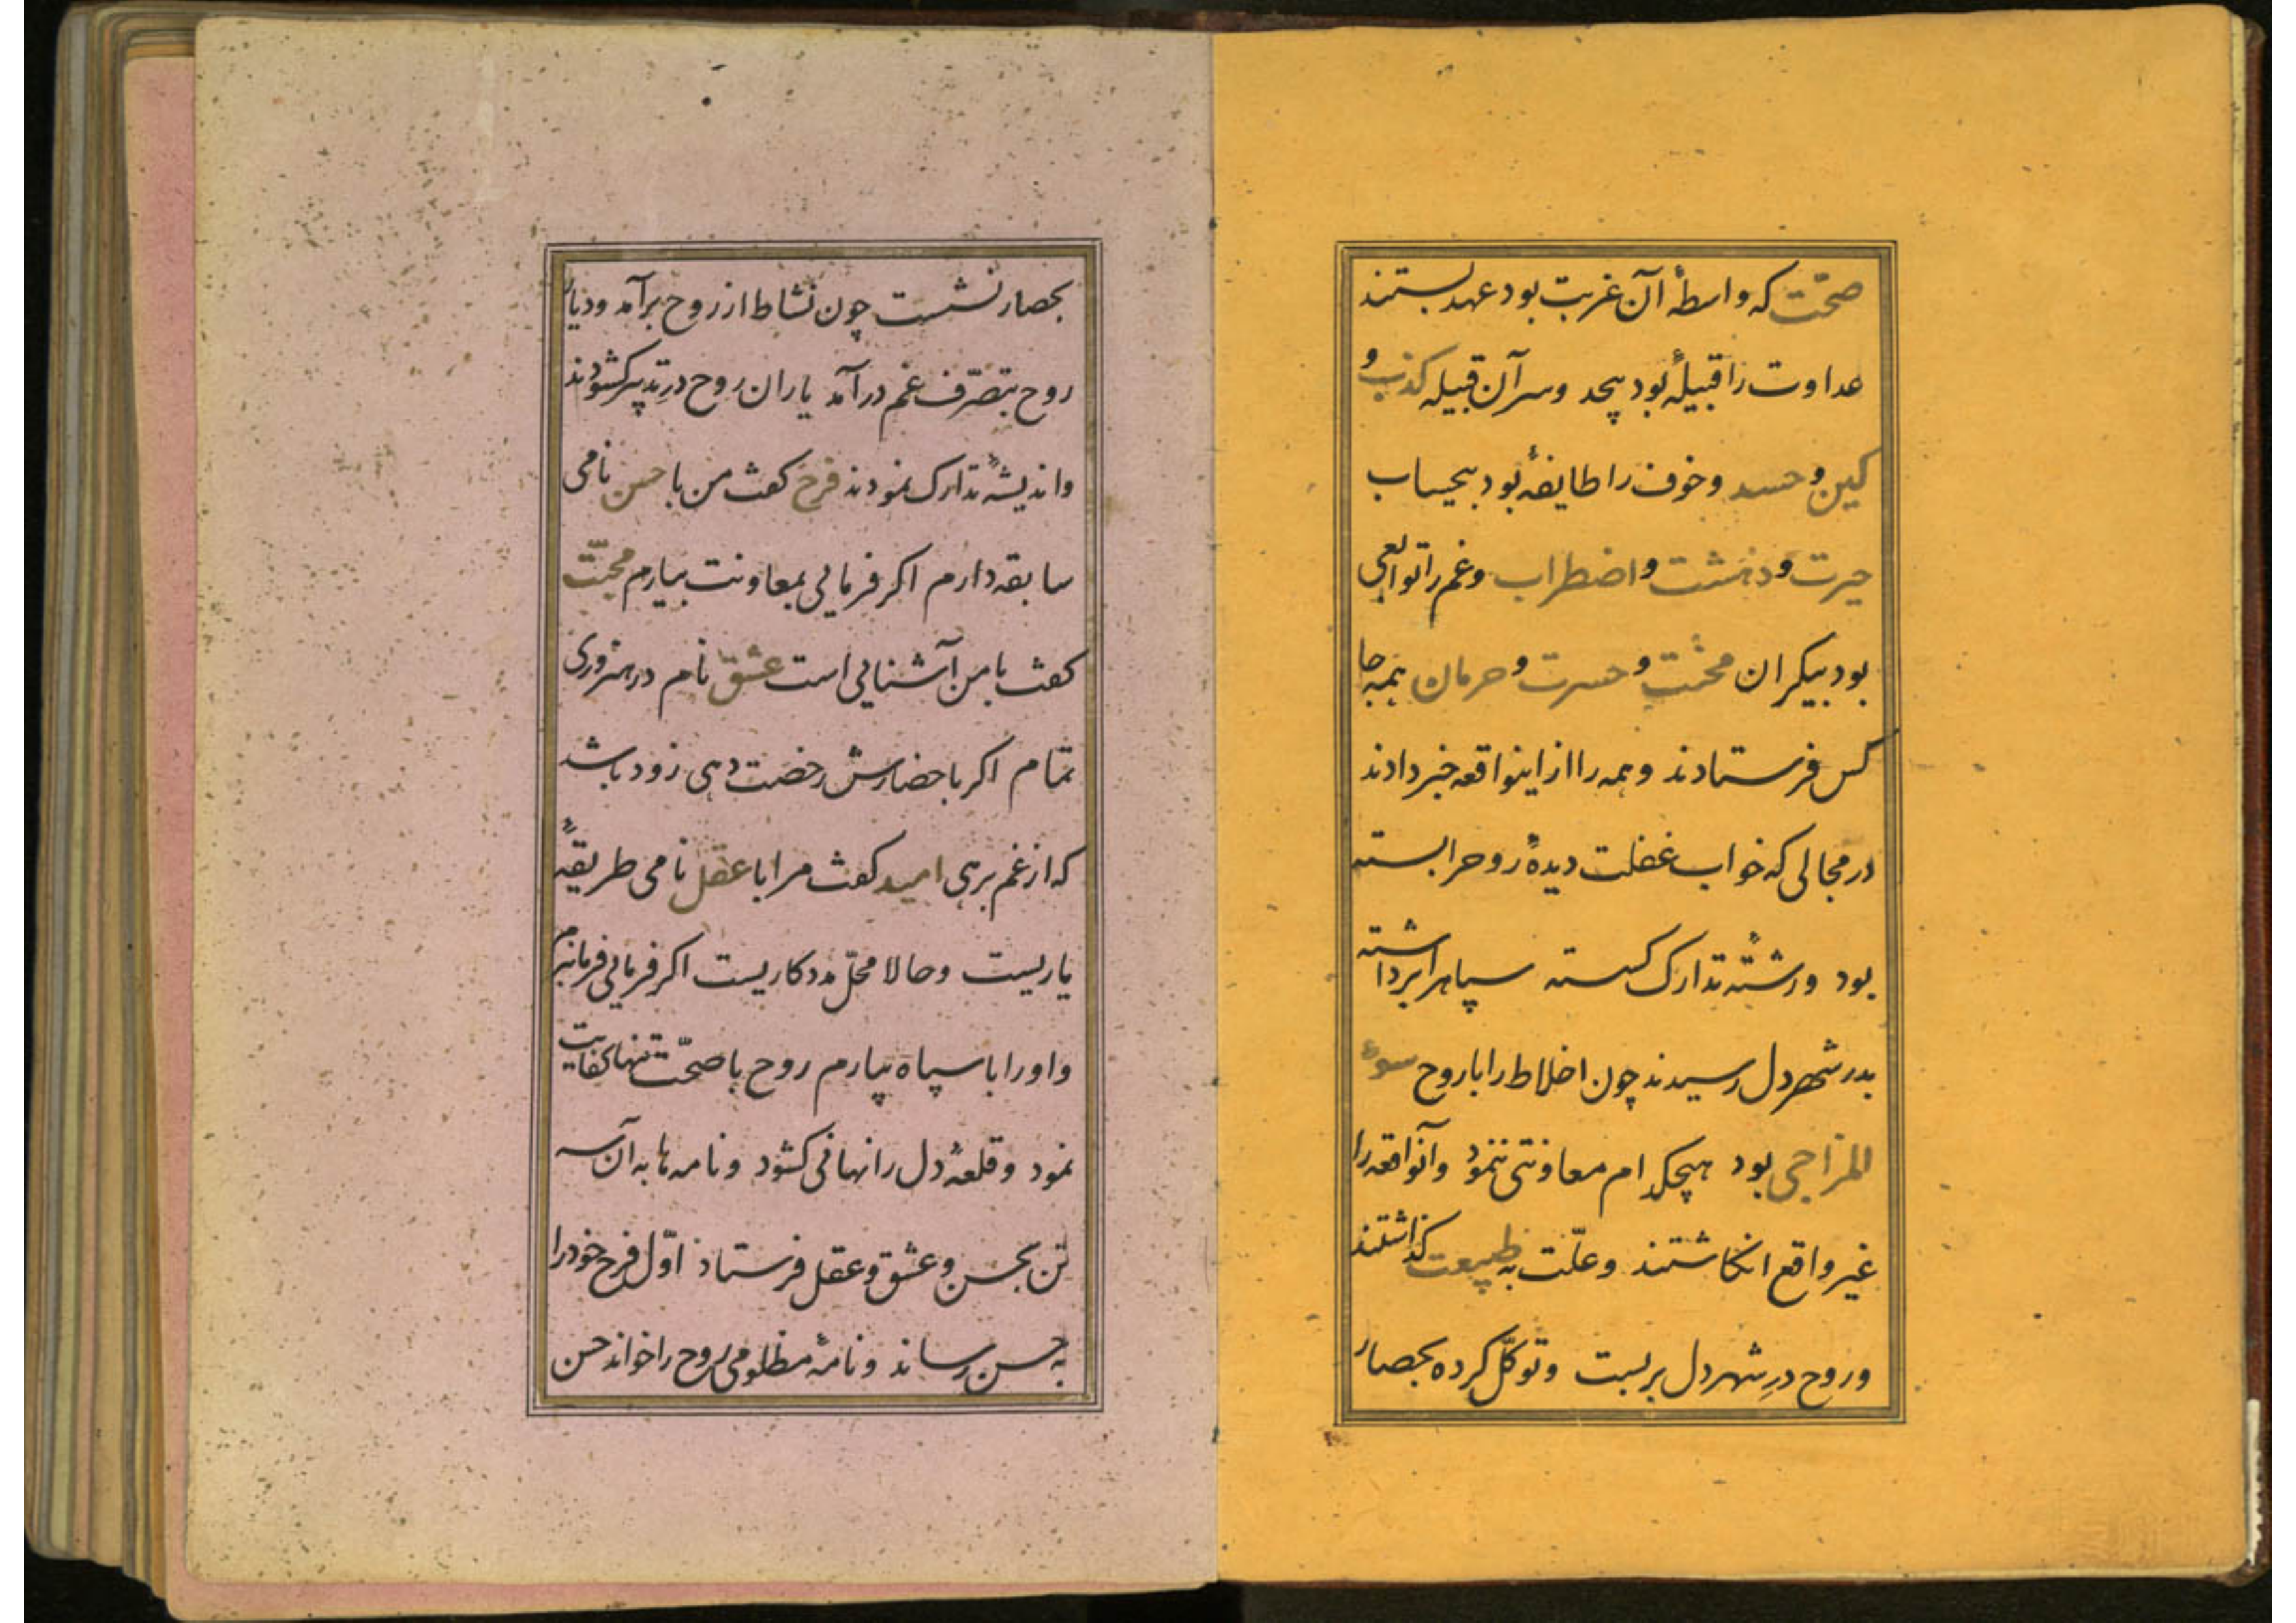 صحّت که واسطهٔ آن غربت بود عهد بستند
عداوت را قبیلهٔ بود بیحد وسر آن قبیله کذب و
کین و حسد وخوف را طایفهٔ بود بیحساب
حیرت و دهشت و اضطراب وغم را توابعی
بود بیکران محنت و حسرت و حرمان بهمه جا
کس فرستادند وهمه را از اینواقعه خبر دادند
در محالی که خواب غفلت دیدهٔ روحرا بسته
بود ورشتهٔ تدارک کسسته سپاهرا برداشته
بدر شهر دل رسیدند چون اخلاط را با روح سوء
المزاجی بود هیچکدام معاونتی ننمود وآنواقعه را
غیر واقع انکاشتند وعلّت به طبیعت کذاشتند
وروح درِ شهر دل بر بست وتوکّل کرده بحصار
بحصار نشست چون نشاط از روح برآمد ودیار
روح بتصرّف غم درآمد یاران روح درِ تدبیر کشودند
واندیشهٔ تدارک نمودند فرح کفت من با حسن نامی
سابقه دارم اکر فرمایی بمعاونت بیارم محبّت
کفت با من آشنایی است عشق نام در هنروری
تمام اکر باحضارش رخصت دهی زود باشد
که از غم برهی امید کفت مرا با عقل نامی طریقهٔ
یاریست وحالا محلّ مددکاریست اکر فرمایی فرمانبرم
واورا با سپاه بیارم روح با صحّت تنها کفایت
نمود وقلعهٔ دل را نهانی کشود ونامه ها به آن سه
تن بحسن وعشق وعقل فرستاد اوّل فرح خودرا
به حسن رساند ونامهٔ مظلومی روح را خواند حسن